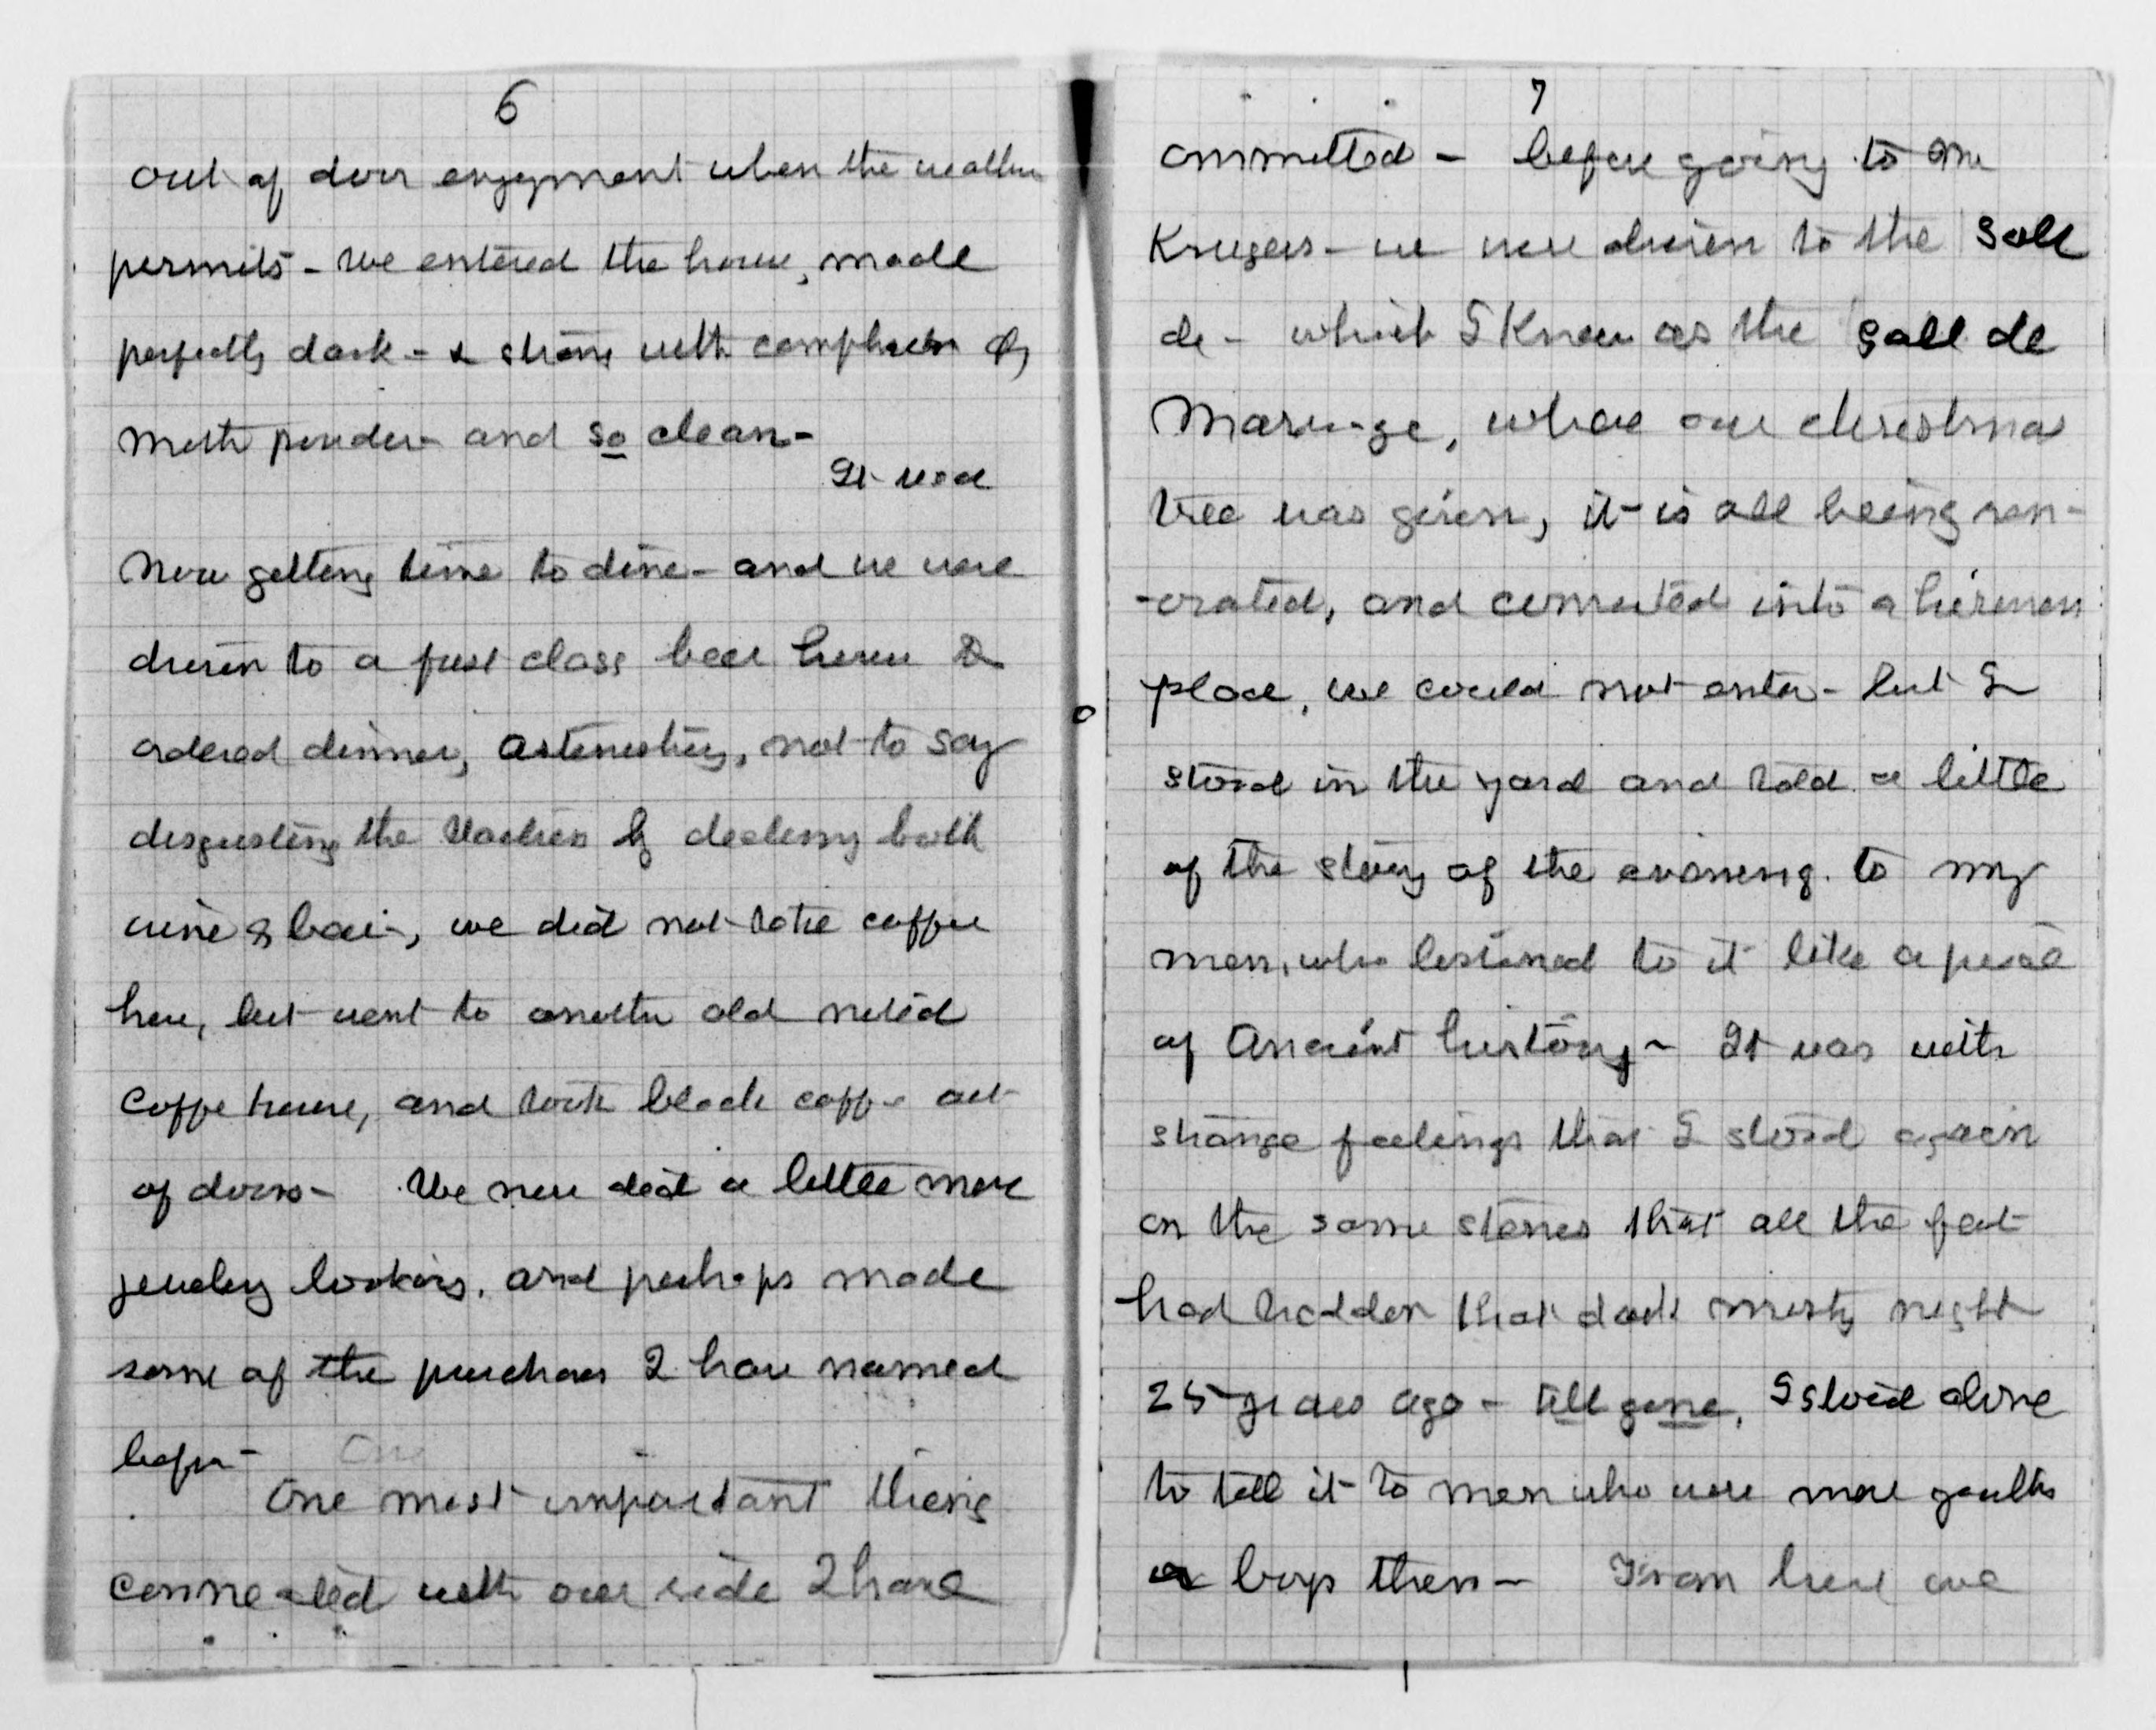 6
out of door enjoyment when the weather
permits - We entered the house, made
perfectly dark - & strong with camphor &
moth powder - and so clean -
It was
now getting time to dine - and we were
driven to a first class beer house &
ordered dinner, astonishing, not to say
disgusting the by declining both
wine & beer, we did not take coffee
here, but went to another old noted
coffe house, and took black coffe out
of doors - We now did a little more
jewelry looking, and perhaps made
some of the purchases I have named
before -
One most important thing
connected with our ride I have
7
ommitted - before going to Mr
Krugers - we were driven to the Sall
de - which I knew as the Sall de
Mariage, where our christmas
tree was given, it is all being ren-
-ovated, and converted into a
place, we could not enter - but I
stood in the yard and told a little
of the story of the evening to my
men, who listened to it like a piece
of Ancient history - It was with
strange feelings that I stood again
on the same stones that all the feet
had trodden that dark misty night
25 years ago - all gone, I stood alone
to tell it to men who were mere youths
or boys then - From here we